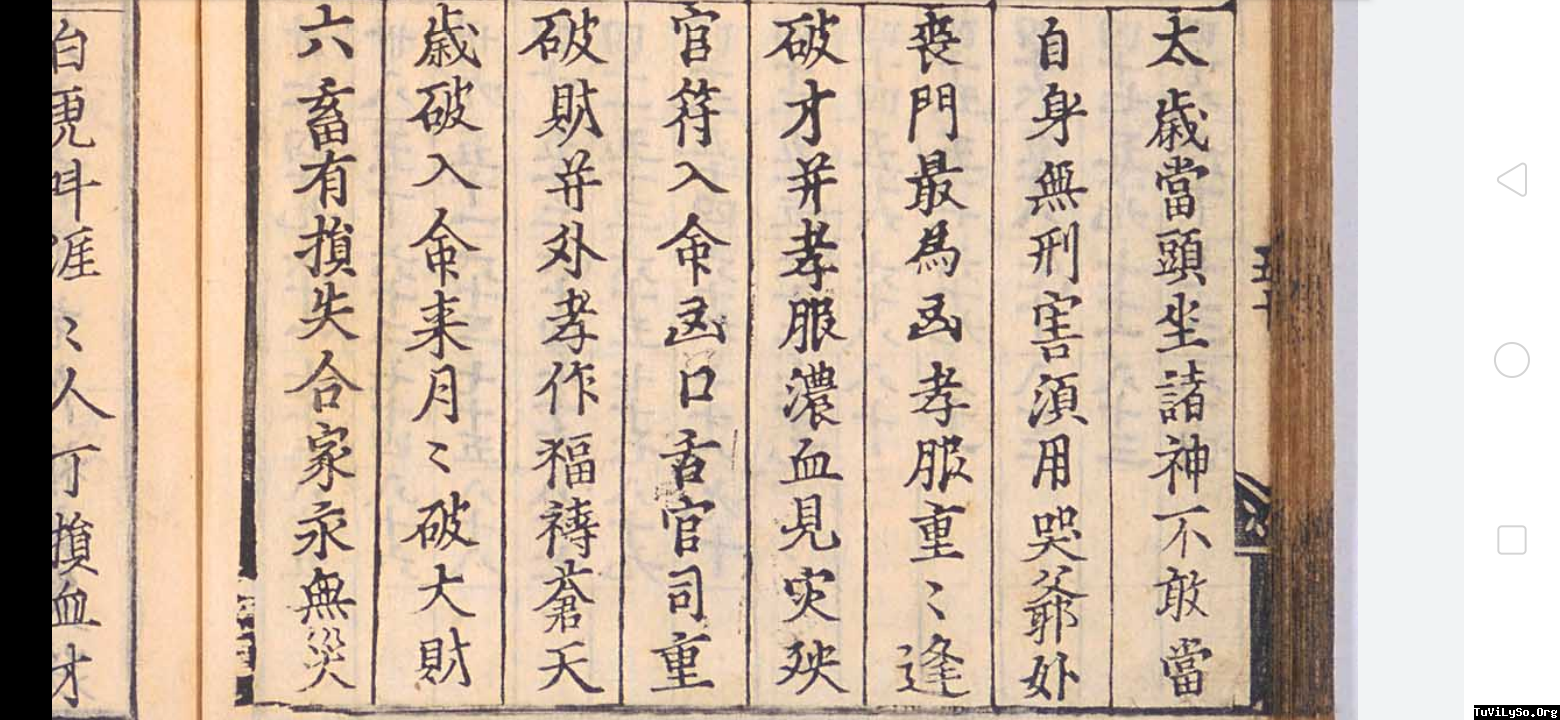 太歳當頭坐諸神不敢當
自身無刑害湏用哭爺妳
喪門最為凶孝服重〻逢
破才并孝服濃血見灾殃
官符入命凶口舌官司重
破財并外孝作福禱蒼天
歳破入命来月〻破大財
六畜有損失合家永無災
白虎呌涯〻人丁損血才
TuViLySo.Org